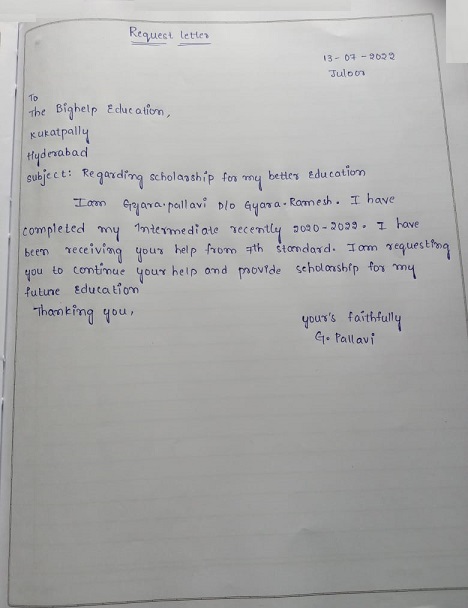 Request letter
13-07-2022
Juloor
To
The Bighelp Education,
Kukatpally
Hyderabad
subject: Regarding scholarship for my better Education
I am Gyara.pallavi D/o Gyara.Ramesh. I have
completed my Intermediate recently 2020-2022. I have
been receiving your help from 7th standard. I am requesting
you to continue your help and provide scholarship for my
future Education
Thanking you,
your's faithfully
G. Pallavi